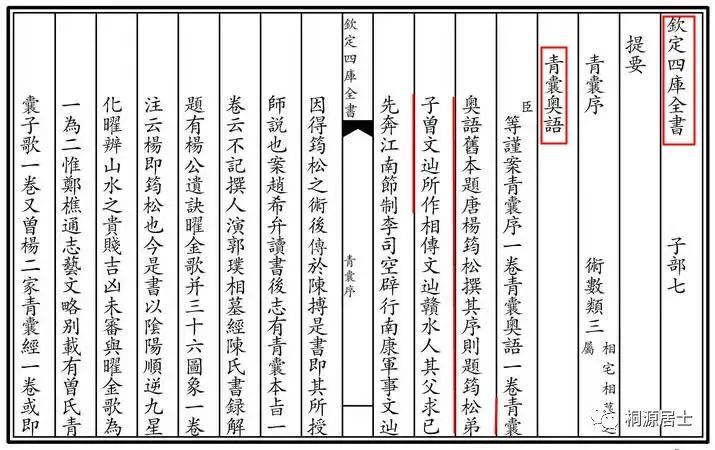 欽定四庫全書 子部七
提要 術數類三 相宅相墓之屬
青囊序
青囊奥語
臣等謹案青囊序一卷青囊奥語一卷青囊
奥語舊本題唐楊筠松撰其序則題筠松弟
子曾文辿所作相傳文辿贛水人其父求已
先奔江南節制李司空辟行南康軍事文辿
欽定四庫全書 青囊序
因得筠松之術後傳於陳摶是書即其所授
師說也案趙希弁讀書後志有青囊本旨一
卷云不記撰人演郭璞相墓經陳氏書録解
題有楊公遺訣曜金歌并三十六圖象一卷
注云楊即筠松也今是書以陰陽順逆九星
化曜辨山水之貴賤吉凶未審與曜金歌為
一為二惟鄭樵通志藝文略别載有曾氏青
囊子歌一卷又曾楊二家青囊經一卷或即
桐源居士